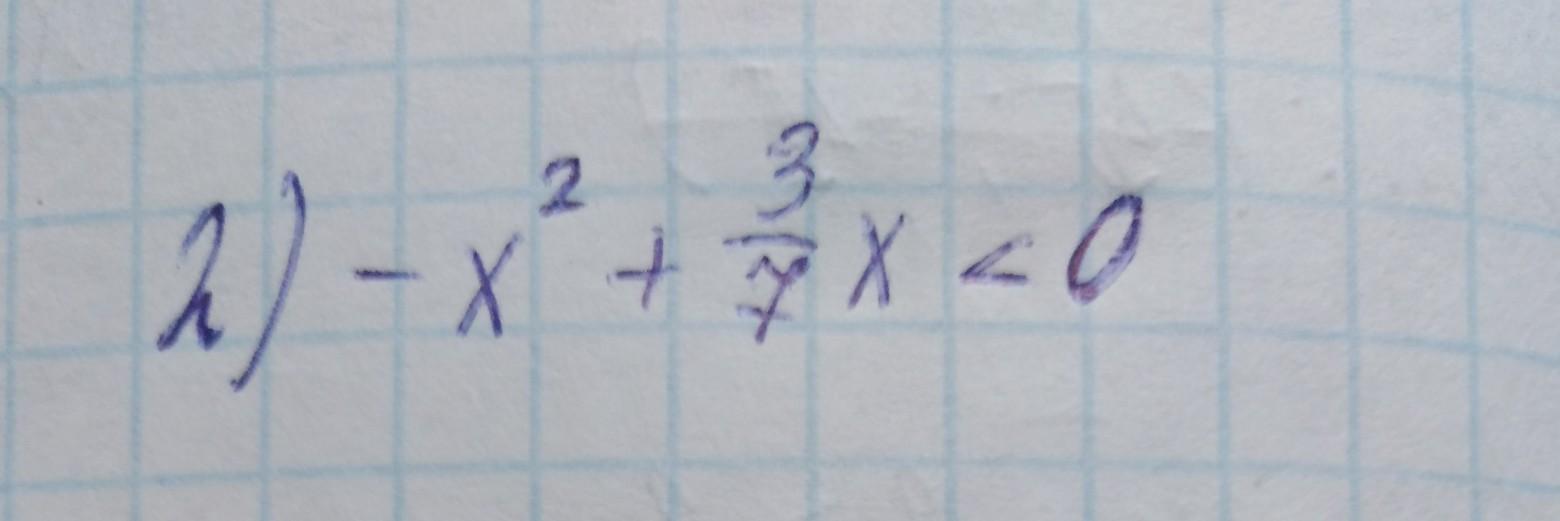 2) -x² + 3/7 x < 0